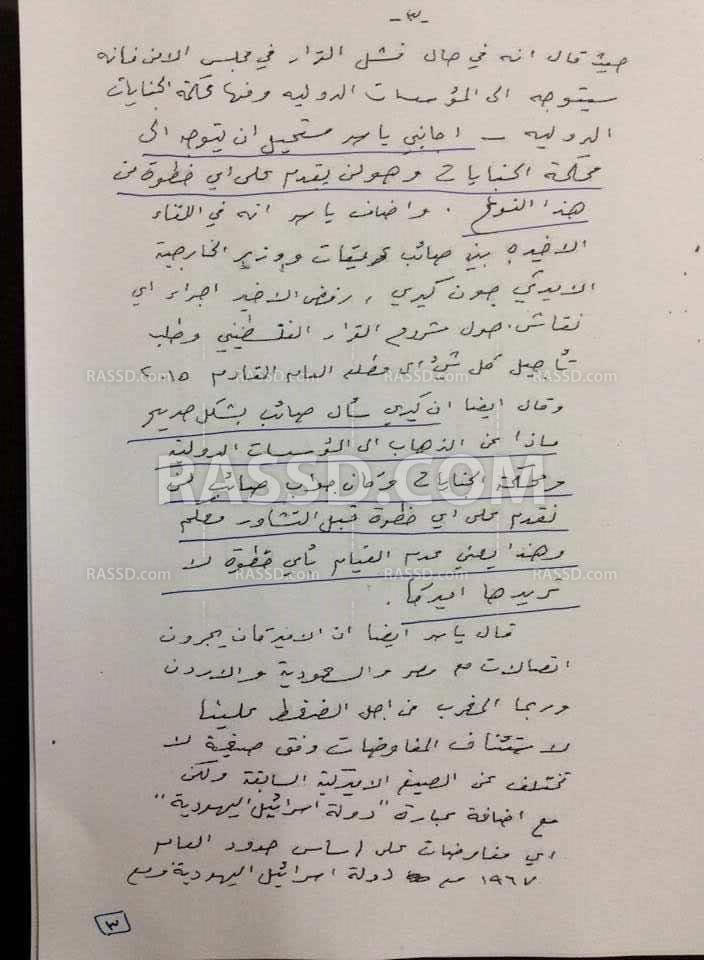 -٣-
حيث قال انه في حال فشل القرار في مجلس الامن فانه
سيتوجه الى المؤسسات الدوليه ومنها محكمة الجنايات
الدوليه – اجابني ياسر مستحيل ان يتوجه الى
محكمة الجنايات وهو لن يقدم على اي خطوة من
هذا النوع . واضاف ياسر انه في اللقاء
الاخير بين صائب عريقات ووزير الخارجية
الامريكي جون كيري ، رفض الاخير اجراء اي
نقاش حول مشروع القرار الفلسطيني وطلب
تأجيل كل شيء الى مطلع العام القادم ٢٠١٥
RASSD.com RASSD.com RASSD.com RASSD.com
وقال ايضا ان كيري سأل صائب بشكل صريح
ماذا عن الذهاب الى المؤسسات الدولية
ومحكمة الجنايات وكان جواب صائب لن
RASSD.COM
نقدم على اي خطوة قبل التشاور معكم
وهذا يعني عدم القيام بأي خطوة لا
RASSD.com RASSD.com RASSD.com RASSD.com
تريدها اميركا .
قال ياسر ايضا ان الاميركان يجرون
اتصالات مع مصر والسعودية والاردن
وربما المغرب من اجل الضغط علينا
لاستئناف المفاوضات وفق صيغة لا
تختلف عن الصيغ الاميركية السابقة ولكن
مع اضافة عبارة "دولة اسرائيل اليهودية"
اي مفاوضات على اساس حدود العام
١٩٦٧ مع دولة اسرائيل اليهودية ومع
٣